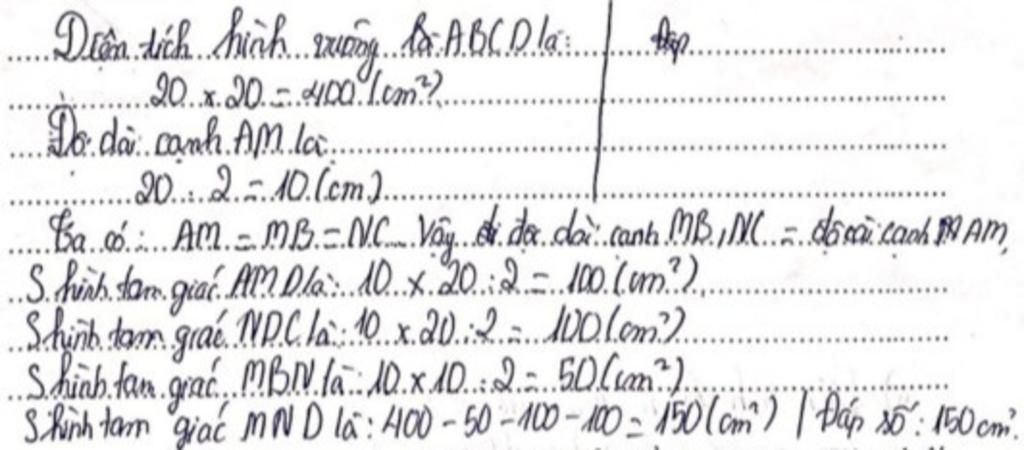 Diện tích hình vuông là ABCD là: Đáp
20 x 20 = 400 (cm²)
Độ dài cạnh AM là
20 : 2 = 10 (cm)
Ta có: AM = MB = NC. Vậy độ dài cạnh MB, NC = độ dài cạnh AM
S hình tam giác AMD là: 10 x 20 : 2 = 100 (cm²)
S hình tam giác NDC là: 10 x 20 : 2 = 100 (cm²)
S hình tam giác MBN là: 10 x 10 : 2 = 50 (cm²)
S hình tam giác MND là: 400 - 50 - 100 - 100 = 150 (cm²) | Đáp số: 150 cm².